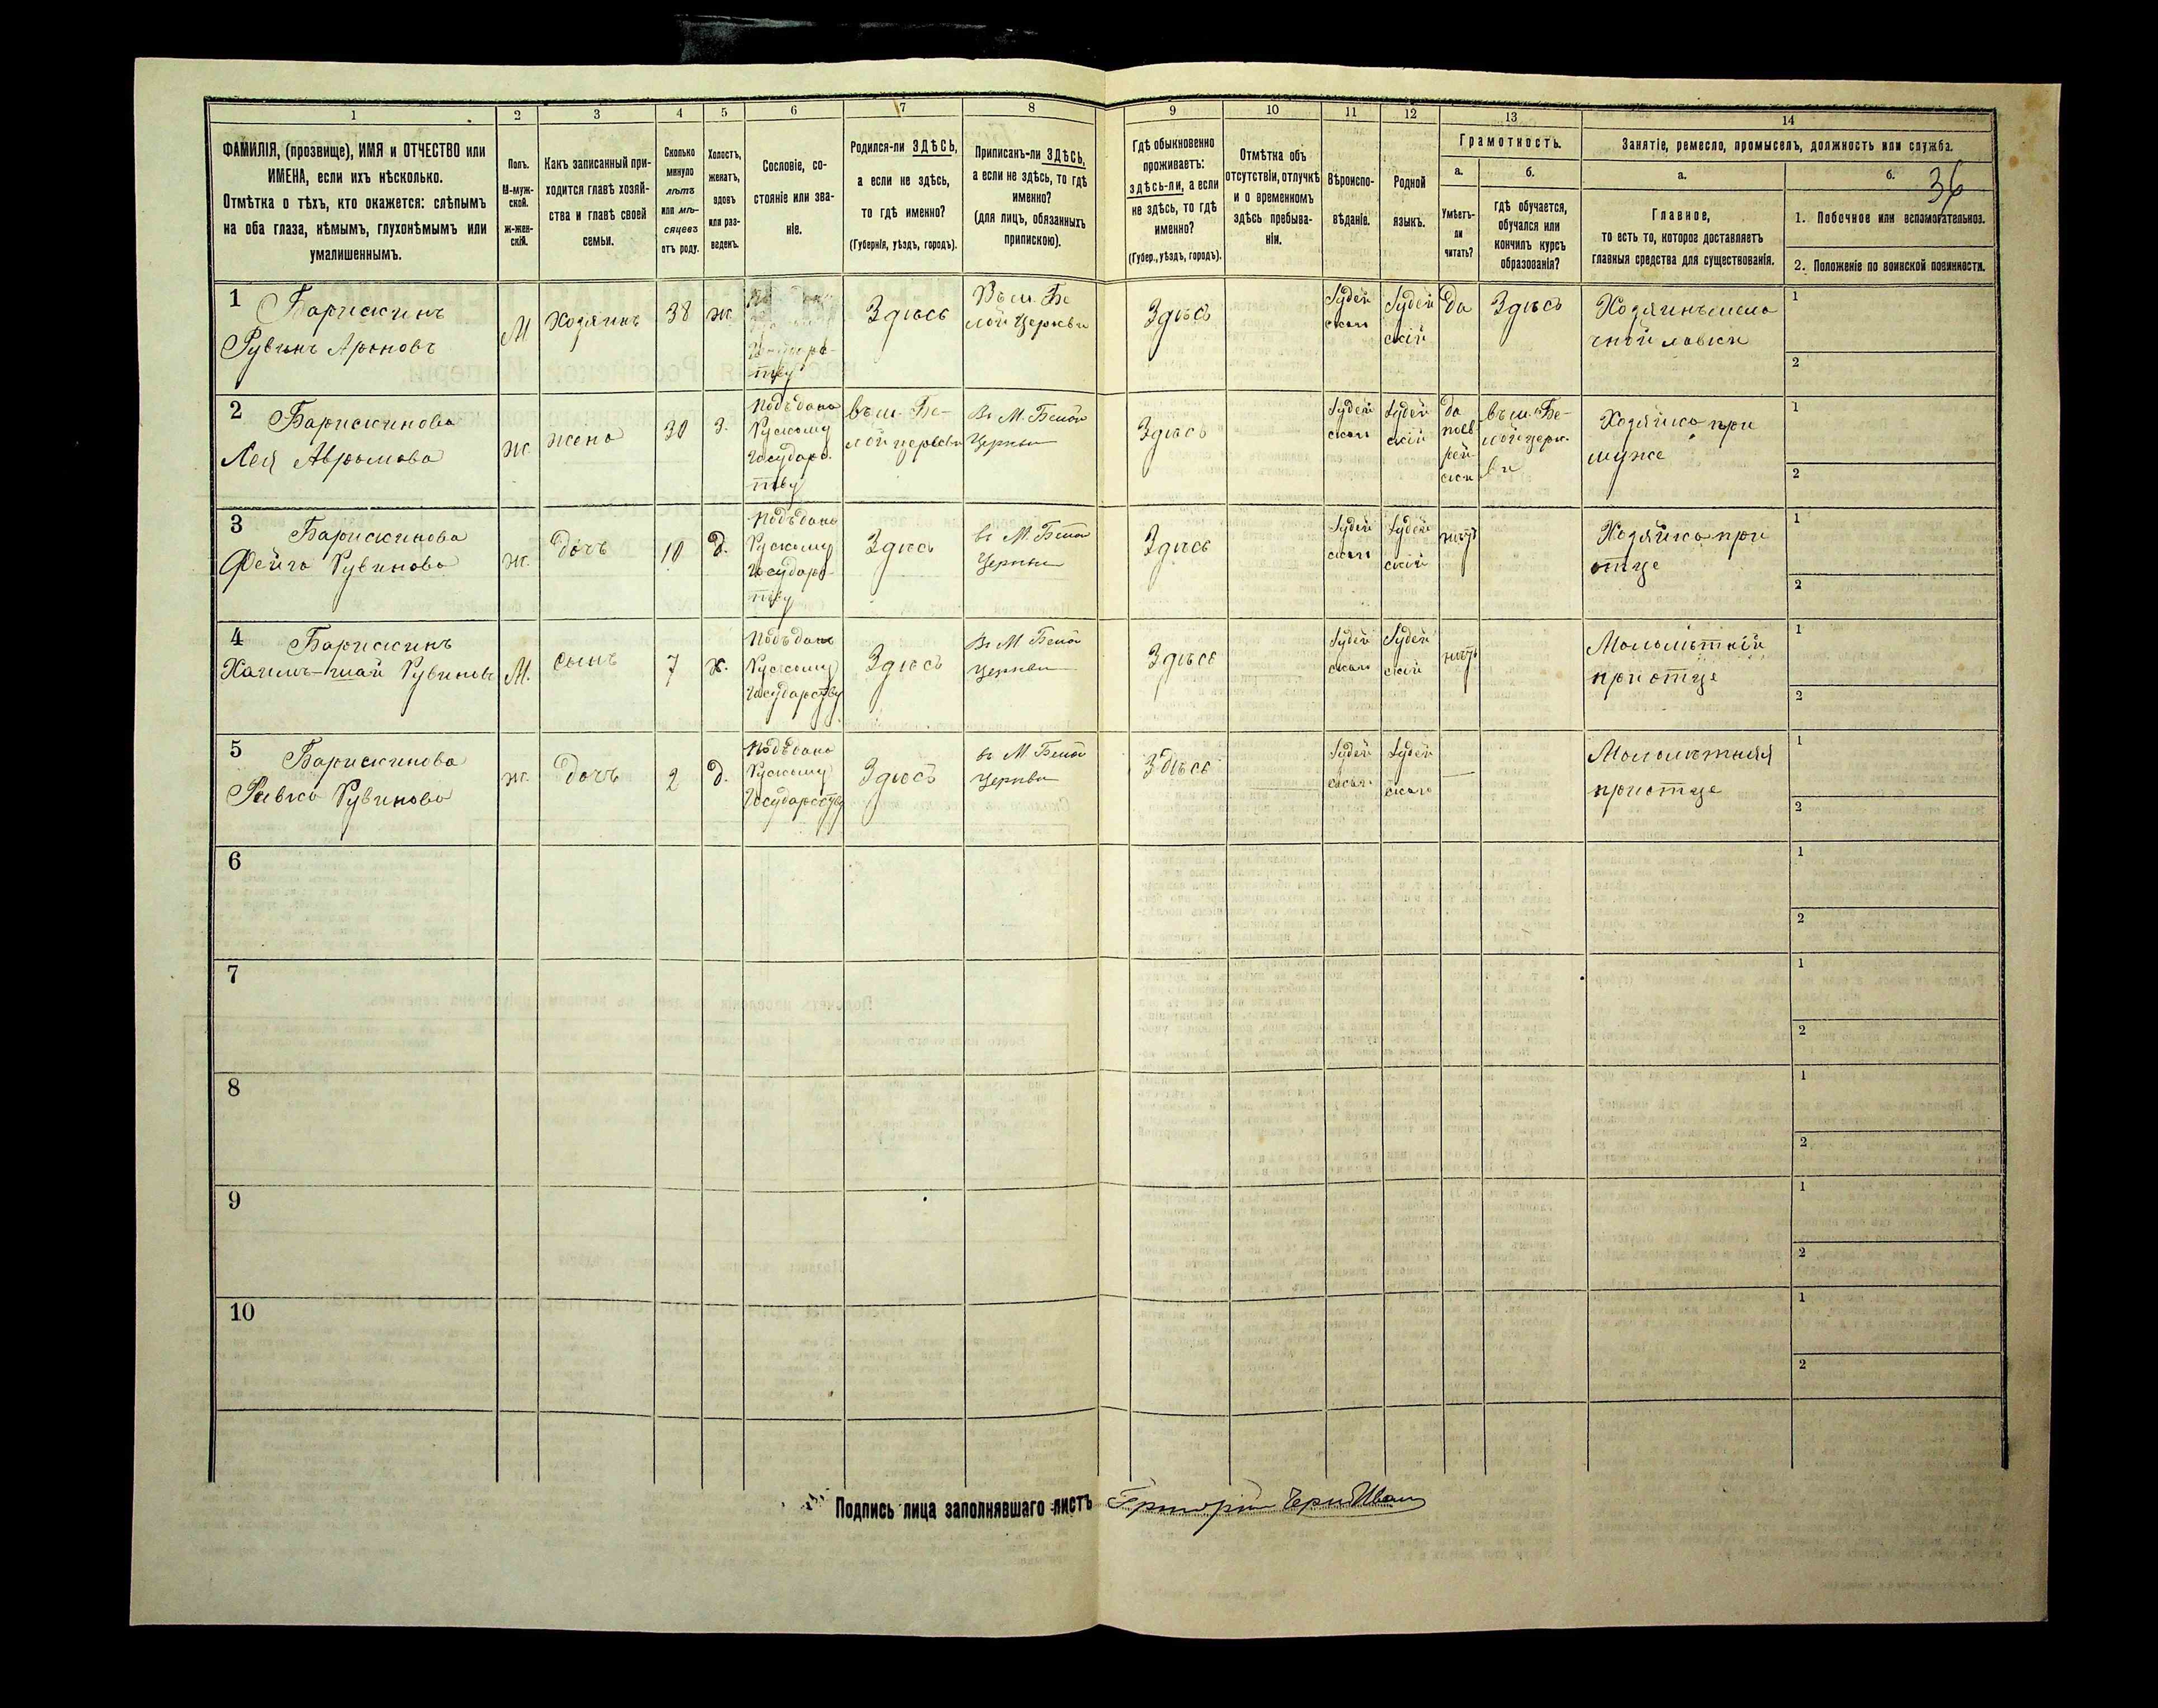 1
2
3
4
5
6
7
8
9
10
11
12
13
14
ФАМИЛІЯ, (прозвище), ИМЯ и ОТЧЕСТВО или
ИМЕНА, если ихъ нѣсколько.
Отмѣтка о тѣхъ, кто окажется: слѣпымъ
на оба глаза, нѣмымъ, глухонѣмымъ или
умалишеннымъ.
Полъ.
М-муж-
ской.
ж-жен-
скій.
Какъ записанный при-
ходится главѣ хозяй-
ства и главѣ своей
семьи.
Сколько
минуло
лѣтъ
или мѣ-
сяцевъ
отъ роду.
Холостъ,
женатъ,
вдовъ
или раз-
веденъ.
Сословіе, со-
стояніе или зва-
ніе.
Родился-ли ЗДѢСЬ,
а если не здѣсь,
то гдѣ именно?
(Губернія, уѣздъ, городъ).
Приписанъ-ли ЗДѢСЬ,
а если не здѣсь, то гдѣ
именно?
(для лицъ, обязанныхъ
припискою).
Гдѣ обыкновенно
проживаетъ:
здѣсь-ли, а если
не здѣсь, то гдѣ
именно?
(Губер., уѣздъ, городъ).
Отмѣтка объ
отсутствіи, отлучкѣ
и о временномъ
здѣсь пребыва-
ніи.
Вѣроиспо-
вѣданіе.
Родной
языкъ.
Грамотность.
а.
Умѣетъ-
ли
читать?
б.
гдѣ обучается,
обучался или
кончилъ курсъ
образованія?
Занятіе, ремесло, промыселъ, должность или служба.
а.
Главное,
то есть то, которое доставляетъ
главныя средства для существованія.
б.
36
1. Побочное или вспомогательное.
2. Положеніе по воинской повинности.
1
Барискинъ
Рувинъ Ароновъ
М
Хозяинъ
38
ж.
Здѣсь
Въ м. Бе
лой Церкви
Здѣсь
Іудей
ской
Іудей
скій
да
Здѣсь
1
2
2
Барискинова
Лея Аврамова
ж.
жена
30
З.
Подъдана
Рускому
Государс-
тву
въ м. Бе-
лой церкви
Въ М. Белой
Церкви
Здѣсь
Іудей
скаи
Іудей
скій
да
въ м. Бе-
лой церк-
ви
Хозяйка при
муже
1
2
3
Барискинова
Фейга Рувинова
ж.
дочь
10
д.
Подъдана
Рускому
Государс-
тву
Здѣсь
въ М Белой
Церкви
Здѣсь
Іудей
скаи
Іудей
скій
нѣтъ
Хозяйка при
отце
1
2
4
Барискинъ
М.
сынъ
7
х.
Подъданъ
Рускому
Государству
Здѣсь
Въ М Белой
Церкви
Здѣсь
Іудей
скаи
Іудей
скій
нѣтъ
Малолѣткій
при отце
1
2
5
Барискинова
Ривка Рувинова
ж.
дочъ
2
д.
Подъдана
Рускому
Государству
Здѣсь
въ М Белой
Церкви
Здѣсь
Іудей
Іудей
Малолѣтняя
при отце
1
2
6
1
2
7
1
2
8
1
2
9
1
2
10
1
2
Подпись лица заполнявшаго листъ
Григорій